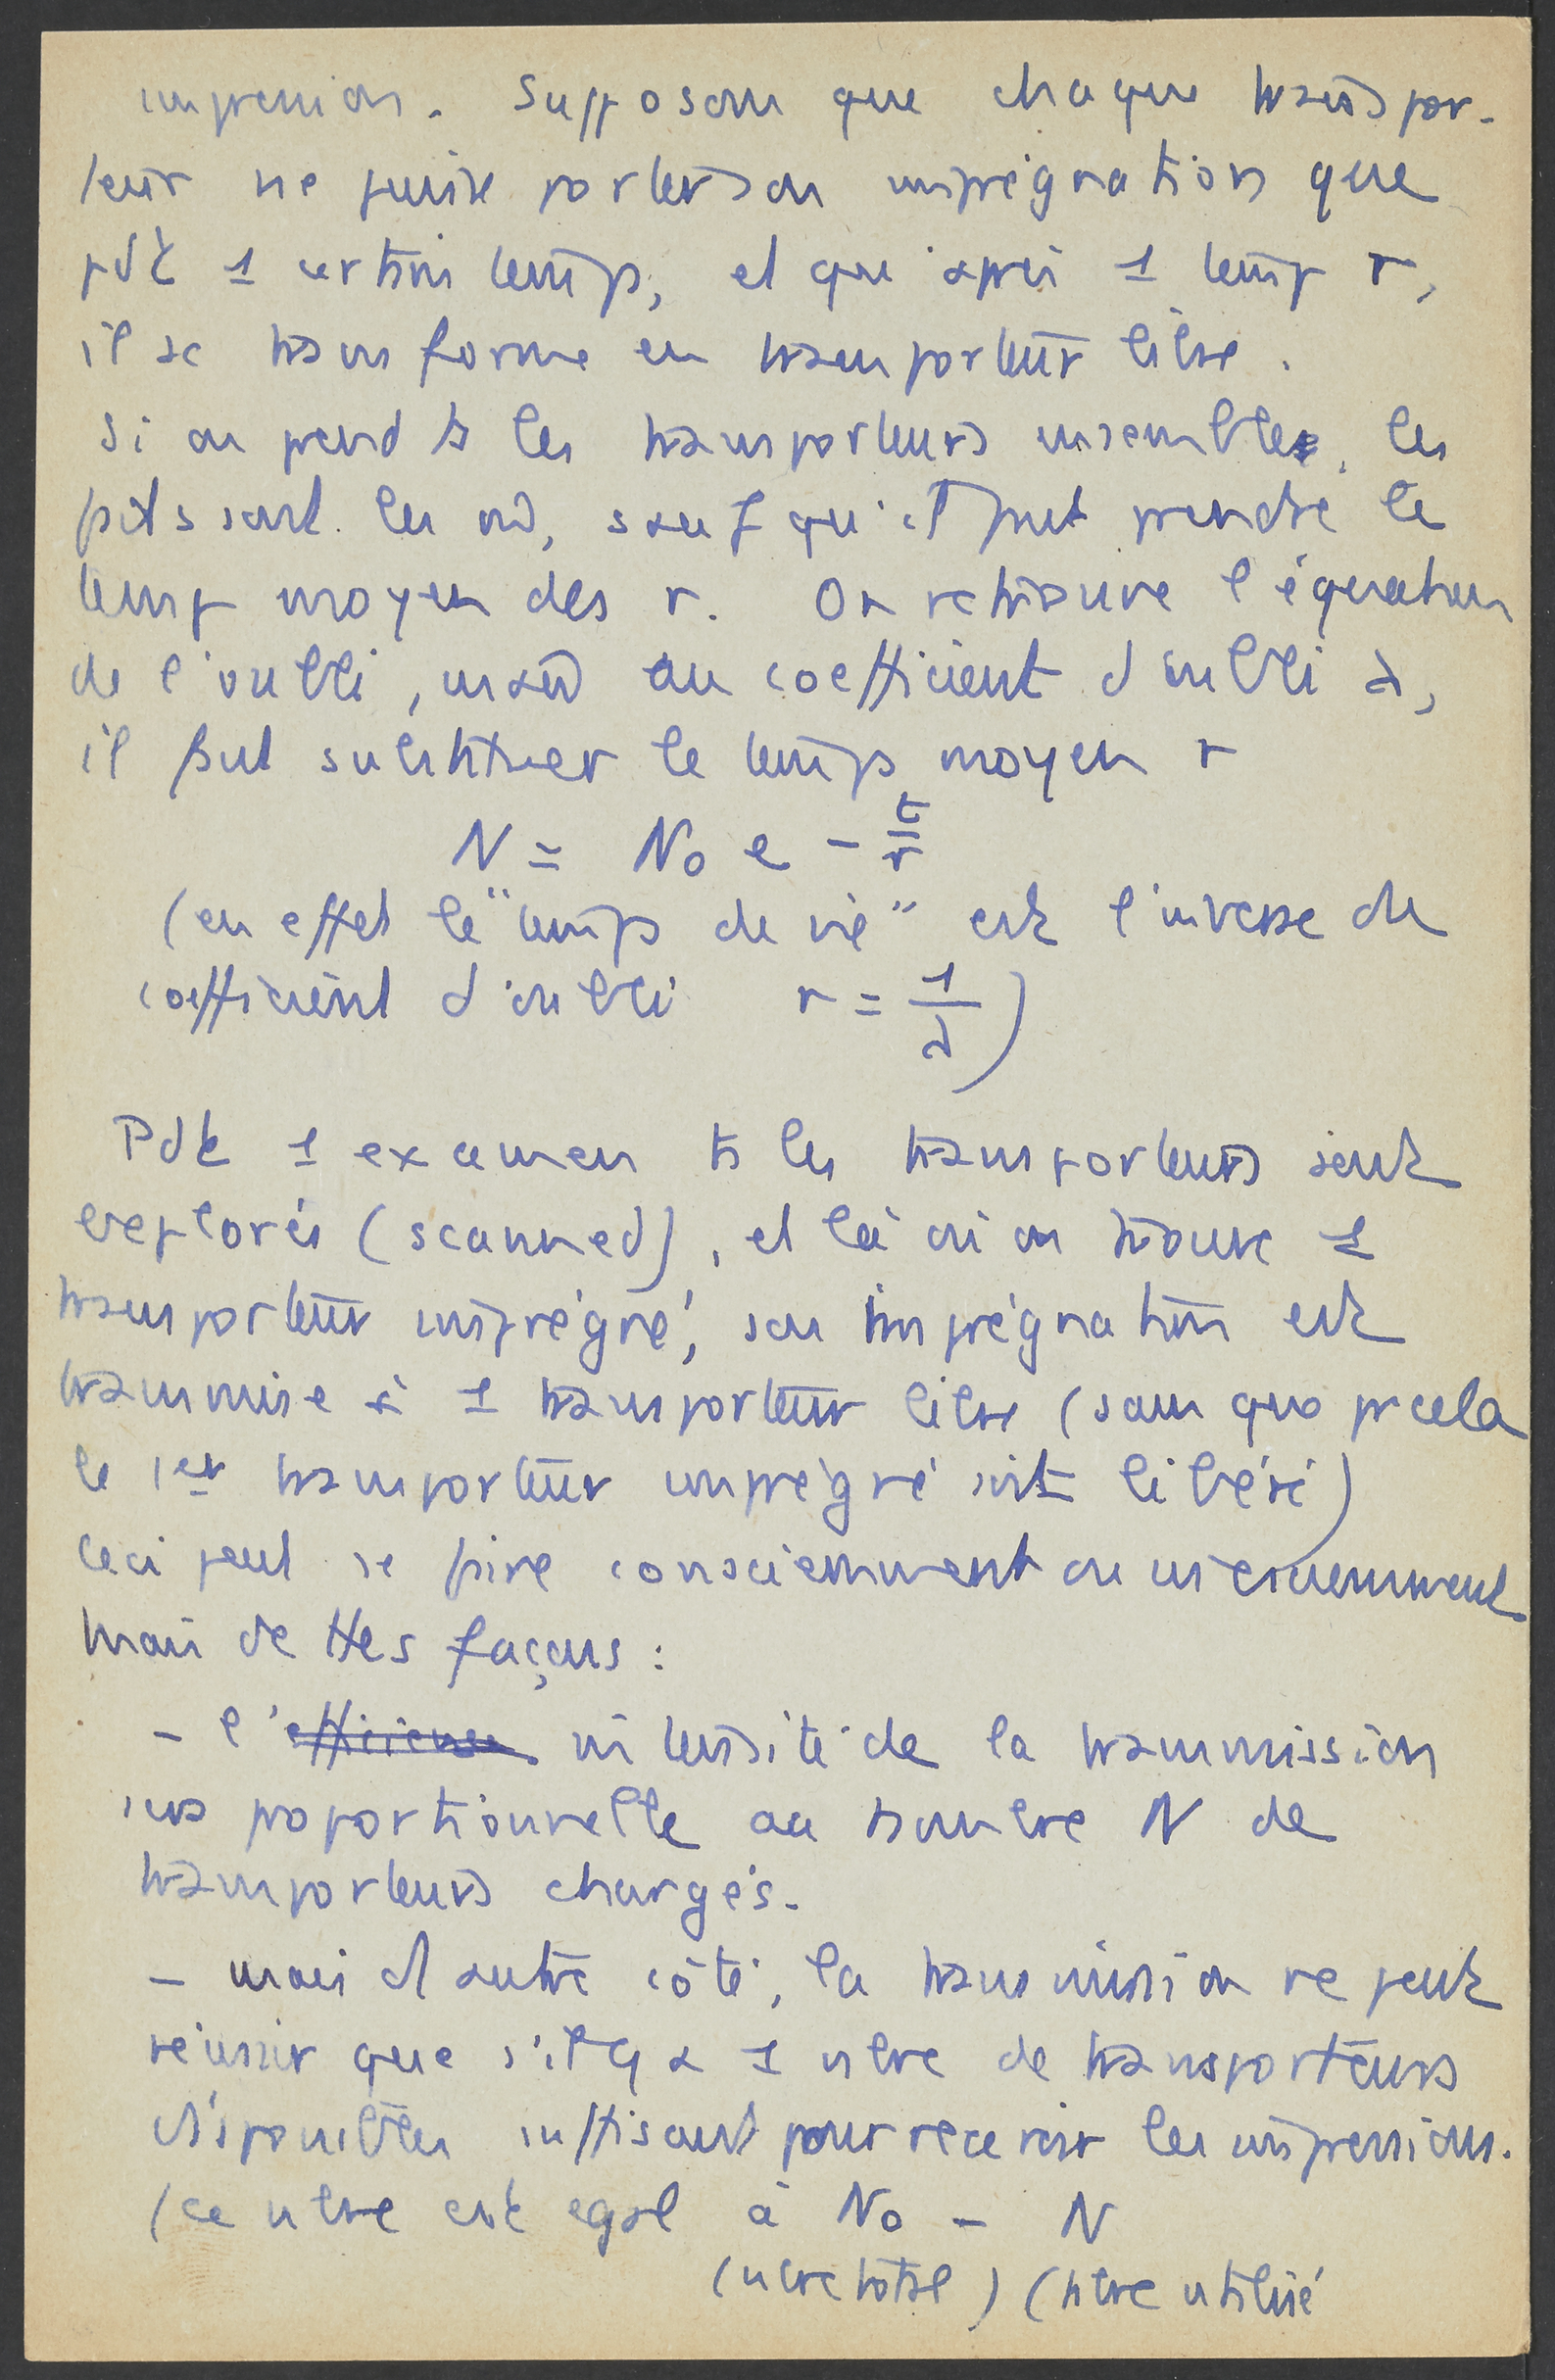 impression. Supposons que chaque transpor-
teur ne puisse porter son imprégnation que
pdt 1 certain temps, et que après 1 temps r,
il se transforme en transporteur libre.
Si on prend ts les transporteurs ensemble, les
faits sont les m̂, sauf qu'il faut prendre le
temps moyen des r. On retrouve l'équation
de l'oubli, mais au coefficient d'oubli λ,
il faut substituer le temps moyen r
N = N₀ e - t/r
(en effet le "temps de vie" est l'inverse du
coefficient d'oubli r = 1/λ)
Pdt 1 examen ts les transporteurs sont
explorés (scanned), et là où on trouve 1
transporteur imprégné, son imprégnation est
transmise à 1 transporteur libre (sans que pr cela
le 1er transporteur imprégné soit libéré)
Ceci peut se faire consciemment ou inconsciemment
mais de ttes façons :
- l'efficience intensité de la transmission
sera proportionnelle au nombre N de
transporteurs chargés.
- mais d'autre côté, la transmission ne peut
réussir que s'il y a 1 nbre de transporteurs
disponibles suffisant pour recevoir les impressions.
(ce nbre est egal à N₀ - N
(nbre total) (nbre utilisé